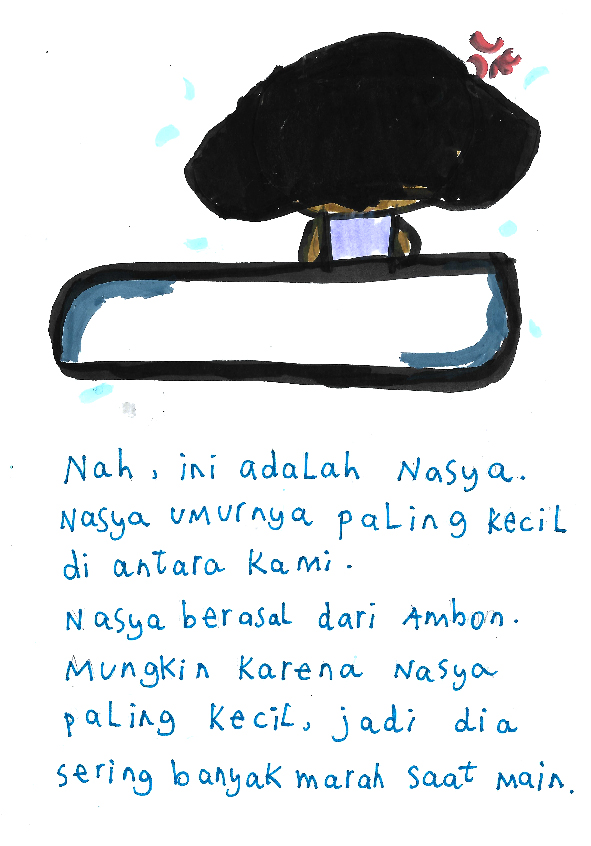 Nah, ini adalah Nasya.
Nasya umurnya paling kecil
di antara kami.
Nasya berasal dari Ambon.
Mungkin karena Nasya
paling kecil, jadi dia
sering banyak marah saat main.